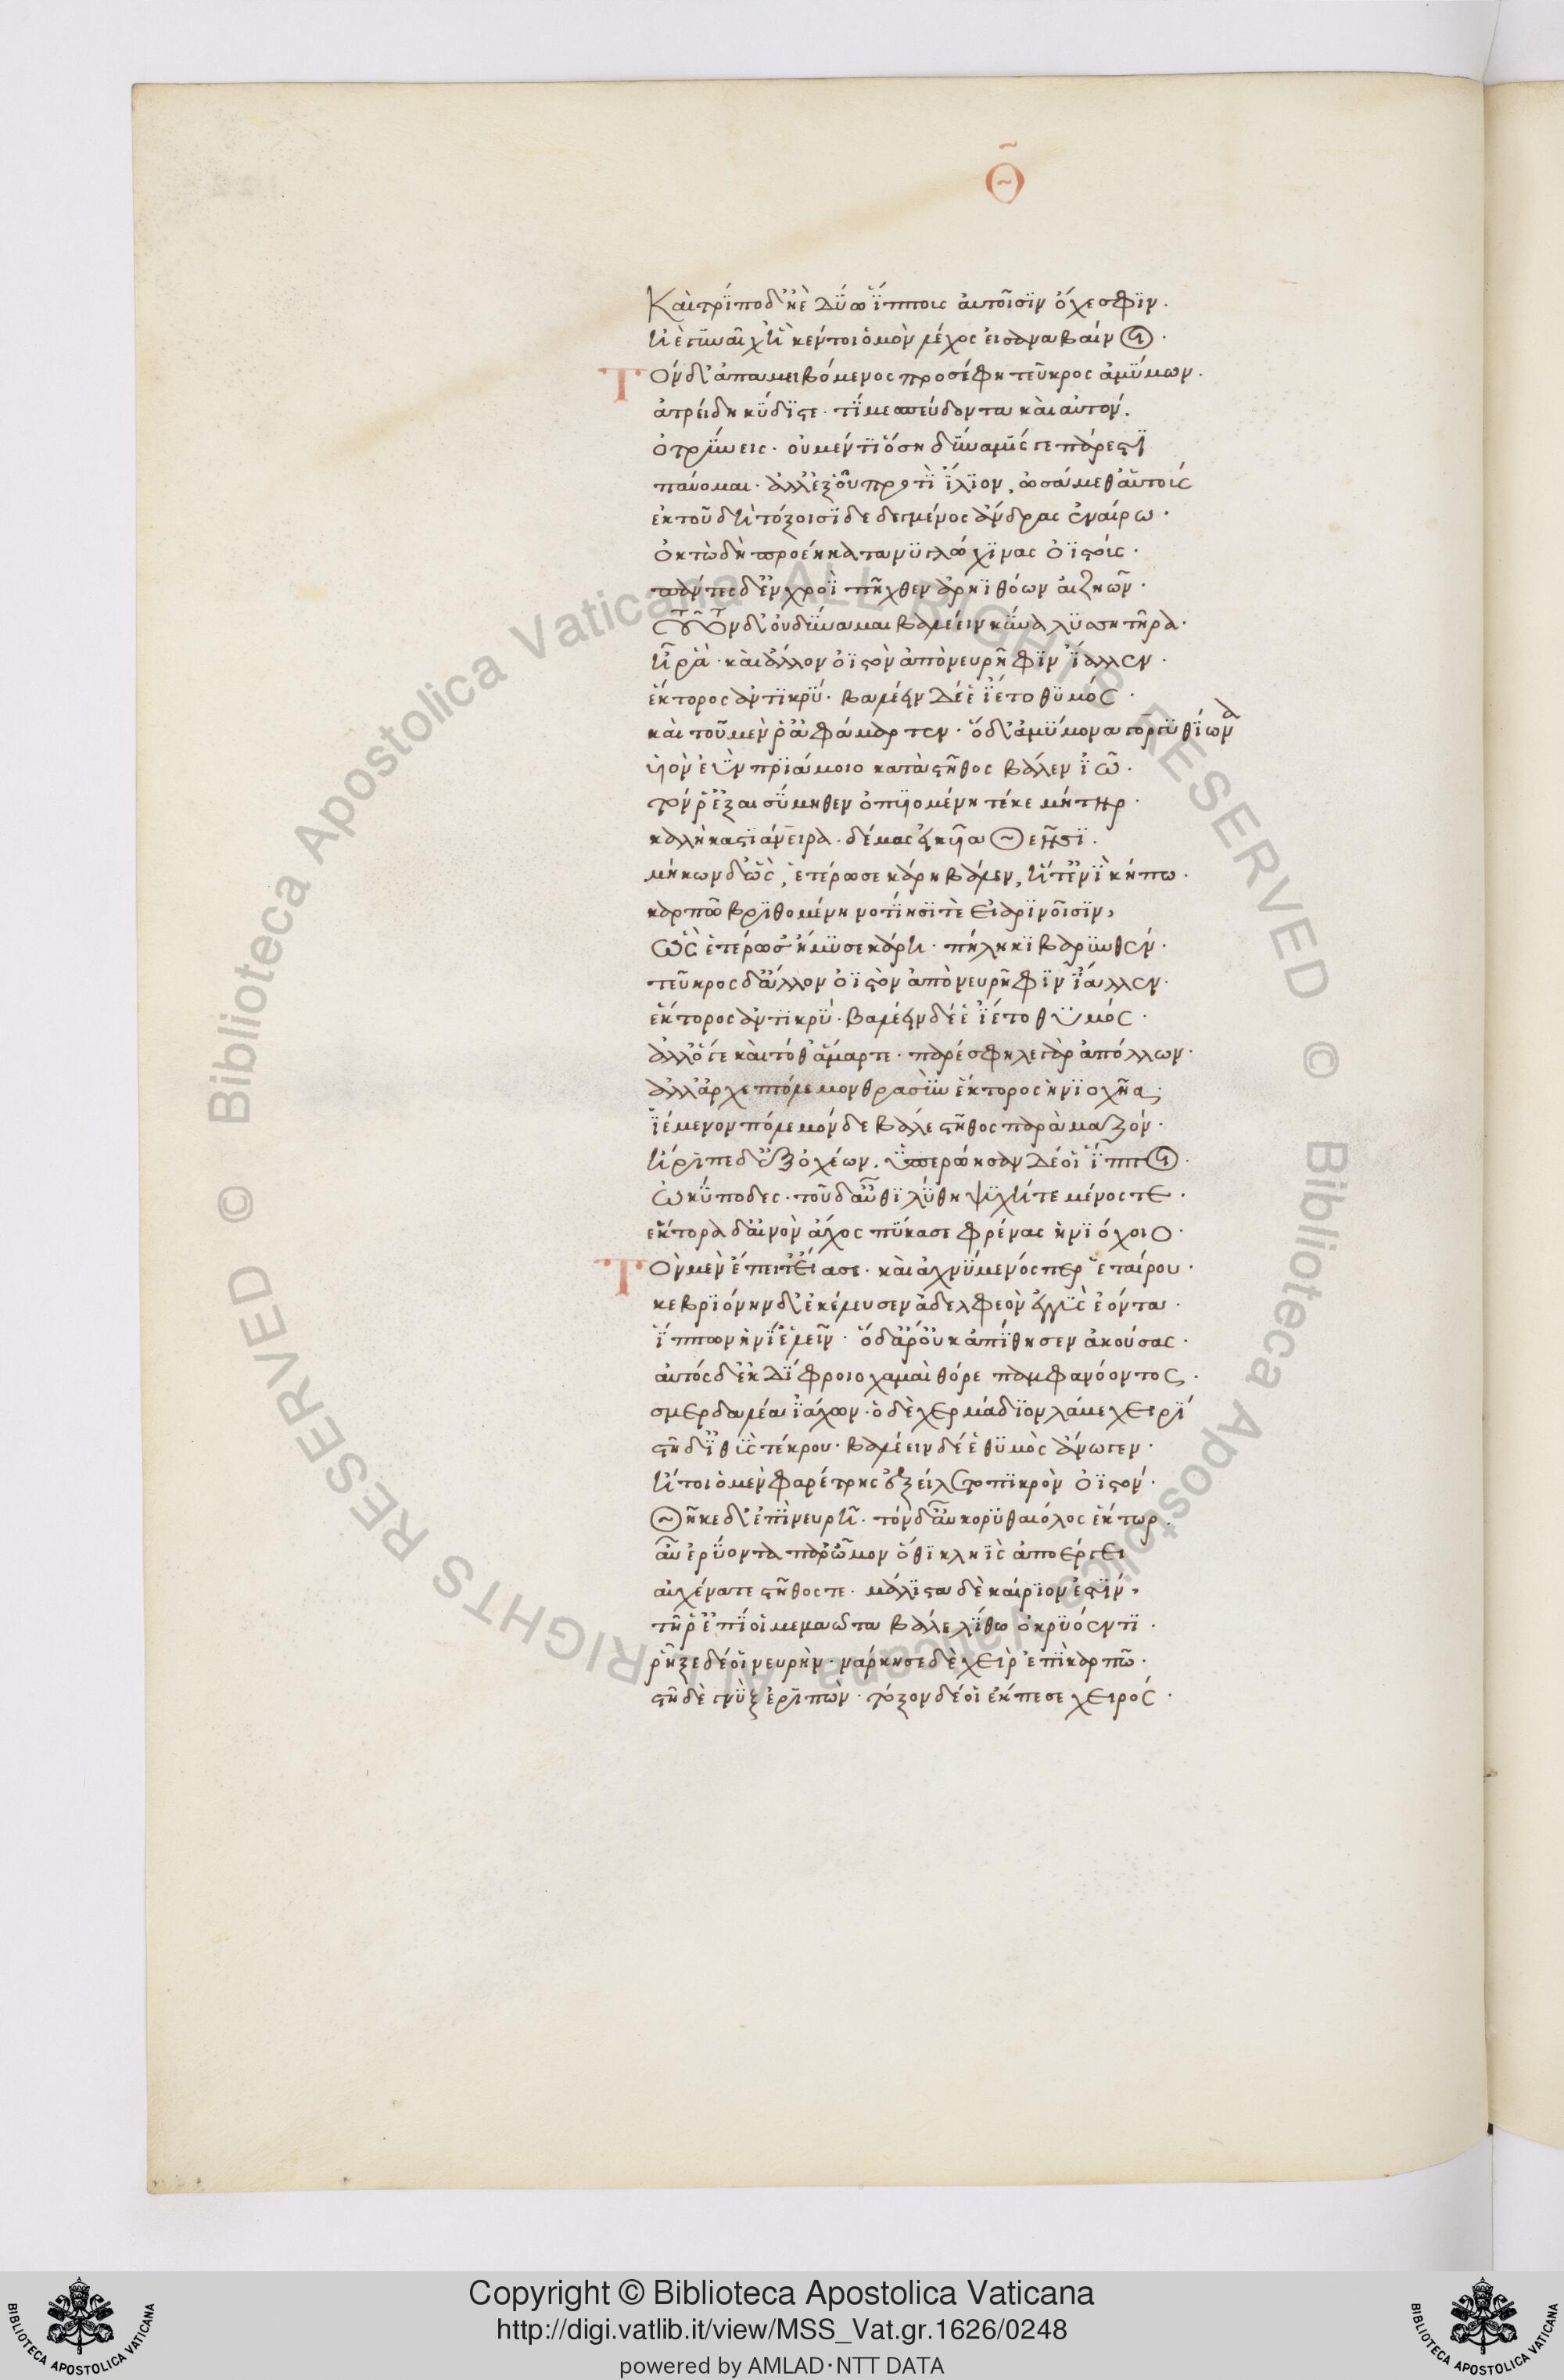 Θ
Καὶ τρίποδ' ἠὲ δύω ἵπποις αὐτοῖσιν ὄχεσφιν.
ἠὲ γυναῖχ' ἥ κέν τοι ὁμὸν λέχος εἰσαναβαίνοι.
Τὸν δ' ἀπαμειβόμενος προσέφη τεῦκρος ἀμύμων.
ἀτρείδη κύδιστε· τί με σπεύδοντα καὶ αὐτόν.
ὀτρύνεις· οὐ μέν τι ὅση δύναμίς γε πάρεστι
παύομαι· ἀλλ' ἐξ οὗ προτὶ ἴλιον, ὠσάμεθ' αὐτοὺς
ἐκ τοῦ δὴ τόξοισι δεδεγμένος ἄνδρας ἐναίρω.
ὀκτὼ δὴ προέηκα τανυγλώχινας ὀϊστούς.
πάντες δ' ἐν χροῒ πῆχθεν ἀρηϊθόων αἰζηῶν.
τοῦτον δ' οὐ δύναμαι βαλέειν κύνα λυσητῆρα.
ἦ ῥά· καὶ ἄλλον ὀϊστὸν ἀπὸ νευρῆφιν ἴαλλεν.
ἕκτορος ἀντικρύ· βαλέειν δέ ἑ ἵετο θυμός.
καὶ τοῦ μέν ῥ' ἀφάμαρτεν· ὃ δ' ἀμύμονα γοργυθίωνα
υἱὸν ἐῢν πριάμοιο κατὰ στῆθος βάλεν ἰῷ.
τόν ῥ' ἐξ αἰσύμηθεν ὀπυιομένη τέκε μήτηρ.
καλὴ καστιάνειρα· δέμας εἰκυῖα θεῇσι.
μήκων δ' ὣς, ἑτέρωσε κάρη βάλεν, ἥτ' ἐνὶ κήπω.
καρπῶ βριθομένη νοτίησί τε εἰαρινοῖσιν,
ὣς ἑτέρωσ' ἤμυσε κάρη· πήληκι βαρυνθέν.
τεῦκρος δ' ἄλλον ὀϊστὸν ἀπὸ νευρῆφιν ἴαλλεν.
ἕκτορος ἀντικρύ· βαλέειν δέ ἑ ἵετο θυμός.
ἀλλ' ὅγε καὶ τόθ' ἅμαρτε· παρέσφηλε γὰρ ἀπόλλων.
ἀλλ' ἀρχεπτόλεμον θρασὺν ἕκτορος ἡνιοχῆα,
ἱέμενον πόλεμον δὲ βάλε στῆθος παρὰ μαζόν.
ἤριπε δ' ἐξ ὀχέων. ὑπερώησαν δέ οἱ ἵπποι.
ὠκύποδες· τοῦ δ' αὖθι λύθη ψυχή τε μένος τε.
ἕκτορα δ' αἰνὸν ἄχος πύκασε φρένας ἡνιόχοιο.
Τὸν μὲν ἔπειτ' εἴασε· καὶ ἀχνύμενός περ ἑταίρου.
κεβριόνην δ' ἐκέλευσεν ἀδελφεὸν ἐγγὺς ἐόντα.
ἵππων ἡνί' ἑλεῖν· ὃ δ' ἄρ' οὐκ ἀπίθησεν ἀκούσας.
αὐτὸς δ' ἐκ δίφροιο χαμαὶ θόρε παμφανόοντος.
σμερδαλέα ἰάχων· ὁ δὲ χερμάδιον λάβε χειρί
στῆ δ' ἰθὺς τεύκρου· βαλέειν δέ ἑ θυμὸς ἄνωγεν.
ἤτοι ὁ μὲν φαρέτρης ἐξείλετο πικρὸν ὀϊστόν.
θῆκε δ' ἐπὶ νευρῆ· τὸν δ' αὖ κορυθαιόλος ἕκτωρ.
αὖ ἐρύοντα παρ' ὦμον ὅθι κληῒς ἀποέργει
αὐχένα τε στῆθος τε· μάλιστα δὲ καίριόν ἐστιν,
τῇ ῥ' ἐπί οἱ μεμαῶτα βάλε λίθω ὀκρυόεντι.
ῥῆξε δέ οἱ νευρὴν· νάρκησε δὲ χεὶρ ἐπὶ καρπῶ.
στῆ δὲ γνὺξ ἐριπὼν· τόξον δέ οἱ ἔκπεσε χειρός.
© Biblioteca Apostolica Vaticana ALL RIGHTS RESERVED
© Biblioteca Apostolica Vaticana ALL RIGHTS RESERVED
Copyright © Biblioteca Apostolica Vaticana
http://digi.vatlib.it/view/MSS_Vat.gr.1626/0248
powered by AMLAD·NTT DATA
BIBLIOTECA APOSTOLICA VATICANA
BIBLIOTECA APOSTOLICA VATICANA